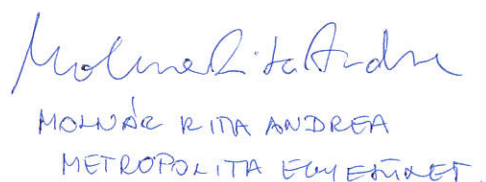 Molnár Rita Andrea
MOLNÁR RITA ANDREA
METROPOLITA EGYESÜLET